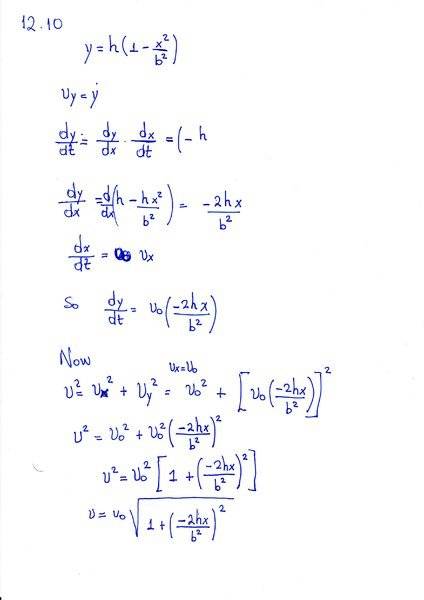 12.10
y = h(1 - x²/b²)
υy = ẏ
dy/dt = dy/dx · dx/dt = (- h
dy/dx = d/dx(h - hx²/b²) = -2hx/b²
dx/dt = υx
So dy/dt = υ₀(-2hx/b²)
Now
υx=υ₀
υ² = υx² + υy² = υ₀² + [υ₀(-2hx/b²)]²
υ² = υ₀² + υ₀²(-2hx/b²)²
υ² = υ₀² [1 + (-2hx/b²)²]
υ = υ₀ √(1 + (-2hx/b²)²)